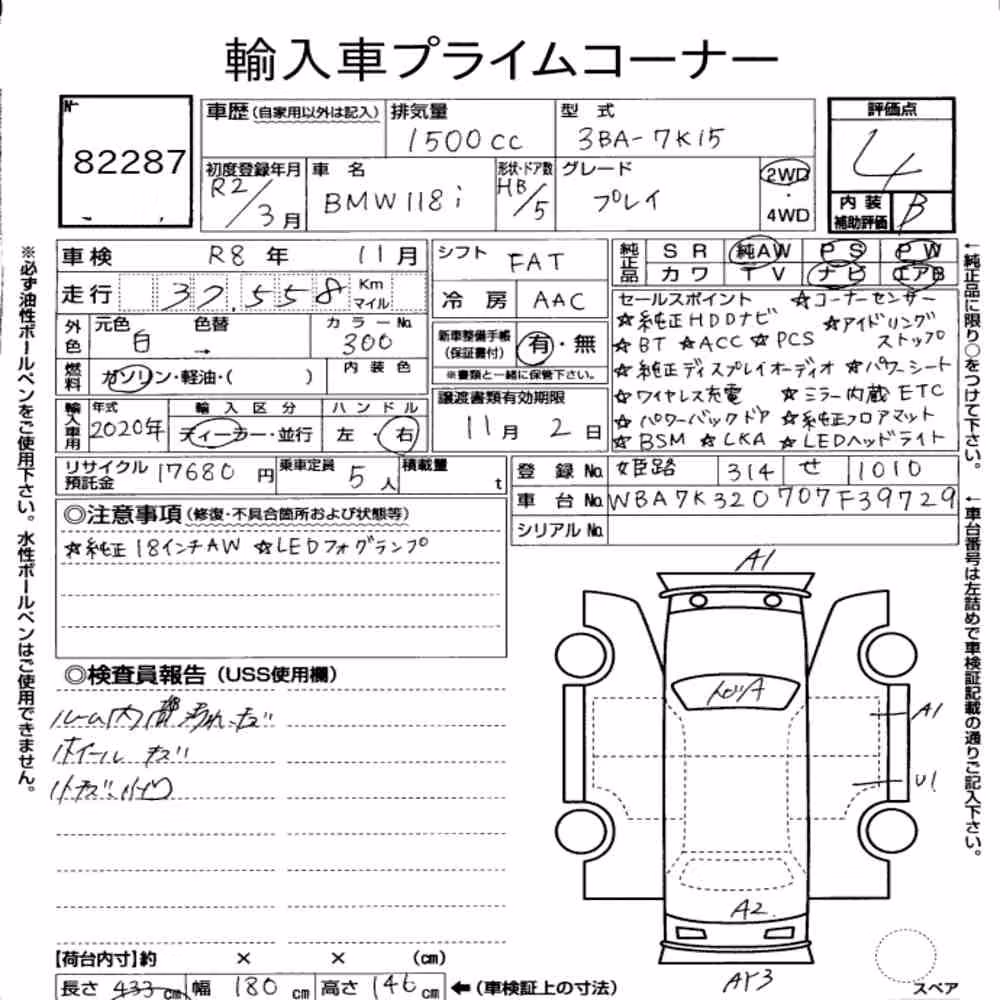 輸入車プライムコーナー
№
82287
車歴(自家用以外は記入)
排気量
1500cc
型 式
3BA-7K15
評価点
4
内装補助評価 B
初度登録年月
R2/3月
車 名
BMW118i
形状・ドア数
HB/5
グレード
プレイ
2WD
・
4WD
車検 R8年 11月
走行 37,558 Km マイル
外色 元色 白 色替 → カラーNo. 300
燃料 ガソリン・軽油・( ) 内装色
輸入車用 年式 2020年 輸入区分 ディーラー・並行 ハンドル 左・右
シフト FAT
冷 房 AAC
新車整備手帳(保証書付) 有・無
※書類と一緒に保管下さい。
譲渡書類有効期限
11月 2日
純正品 SR 純AW PS PW
カワ TV ナビ エアB
セールスポイント ☆コーナーセンサー
☆純正HDDナビ ☆アイドリングストップ
☆BT ☆ACC ☆PCS
☆純正ディスプレイオーディオ ☆パワーシート
☆ワイヤレス充電 ☆ミラー内蔵ETC
☆パワーバックドア ☆純正フロアマット
☆BSM ☆LKA ☆LEDヘッドライト
リサイクル預託金 17680円 乗車定員 5人 積載量 t
登録No. 姫路 314 せ 1010
車台No. WBA7K320707F39729
シリアルNo.
◎注意事項(修復・不具合箇所および状態等)
☆純正18インチAW ☆LEDフォグランプ
◎検査員報告(USS使用欄)
ホイール キズ
A1
A1
U1
A2
AY3
【荷台内寸】約 × × (cm)
長さ 433cm 幅 180cm 高さ 146cm ←(車検証上の寸法)
スペア
※必ず油性ボールペンをご使用下さい。水性ボールペンはご使用できません。
←純正品に限り○をつけて下さい。
←車台番号は左詰めで車検証記載の通りご記入下さい。